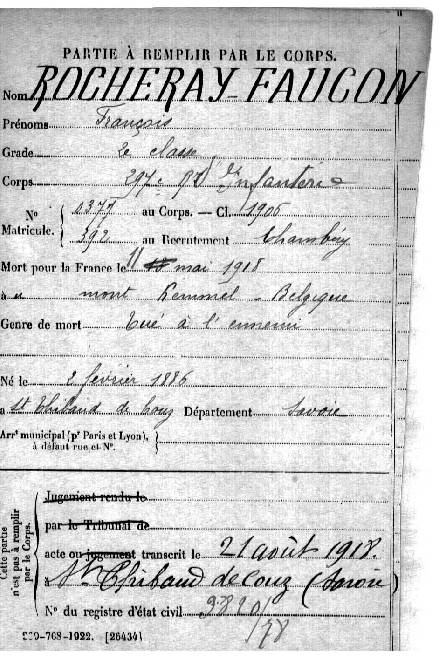 PARTIE À REMPLIR PAR LE CORPS.
Nom ROCHERAY-FAUCON
Prénoms François
Grade 2e classe
Corps 297e Rt d'Infanterie
No Matricule. 1377 au Corps. — Cl. 1906
392 au Recrutement Chambéry
Mort pour la France le 11 mai 1918
à au mont Kemmel - Belgique
Genre de mort Tué à l'ennemi
Né le 2 février 1886
à St Thibaud de Couz Département Savoie
Arrt municipal (pr Paris et Lyon), à défaut rue et No.
Cette partie n'est pas à remplir par le Corps.
Jugement rendu le
par le Tribunal de
acte ou jugement transcrit le 21 août 1918.
à St Thibaud de Couz (Savoie)
No du registre d'état civil
/78
-708-1922. [26434]